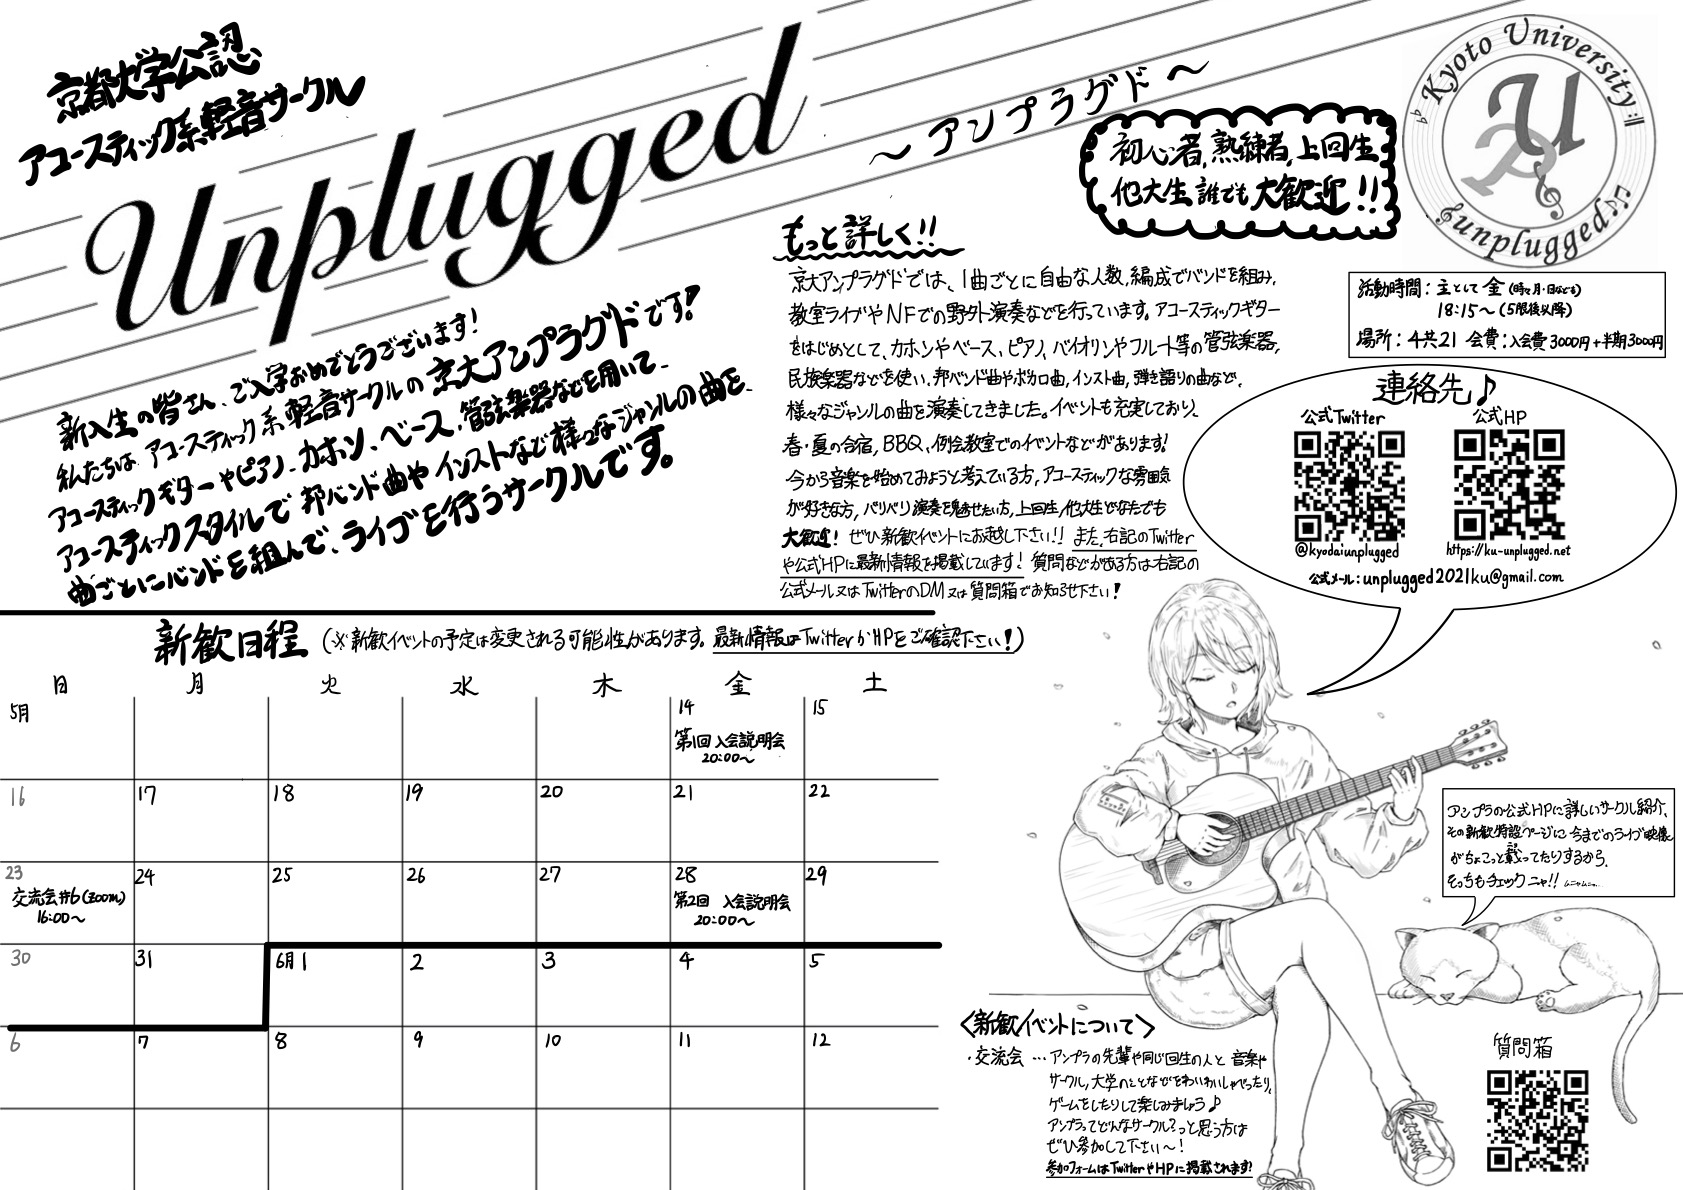 京都大学公認
アコースティック系軽音サークル
Unplugged
～アンプラグド～
初心者,熟練者,上回生,
他大生 誰でも大歓迎!!
Kyoto University
unplugged
新入生の皆さん、ご入学おめでとうございます!
私たちは、アコースティック系軽音サークルの京大アンプラグドです!
アコースティックギターやピアノ、カホン、ベース、管弦楽器などを用いて、
アコースティックスタイルで邦バンド曲やインストなど様々なジャンルの曲を、
曲ごとにバンドを組んで、ライブを行うサークルです。
もっと詳しく!!
京大アンプラグドでは、1曲ごとに自由な人数,編成でバンドを組み,
教室ライブやNFでの野外演奏などを行っています。アコースティックギター
をはじめとして、カホンやベース、ピアノ、バイオリンやフルート等の管弦楽器,
民族楽器などを使い、邦バンド曲やボカロ曲,インスト曲,弾き語りの曲など、
様々なジャンルの曲を演奏してきました。イベントも充実しており、
春・夏の合宿,BBQ,例会教室でのイベントなどがあります!
今から音楽を始めてみようと考えている方,アコースティックな雰囲気
が好きな方,バリバリ演奏を魅せたい方,上回生,他大生どなたでも
大歓迎! ぜひ新歓イベントにお越し下さい!! また,右記のTwitter
や公式HPに最新情報を掲載しています! 質問などがある方は右記の
公式メール又はTwitterのDM又は質問箱でお知らせ下さい!
活動時間:主として金(時々月・日なども)
18:15～(5限後以降)
場所:4共21 会費:入会費3000円+半期3000円
連絡先♪
公式Twitter 公式HP
@kyodaiunplugged https://ku-unplugged.net
公式メール:unplugged2021ku@gmail.com
新歓日程 (※新歓イベントの予定は変更される可能性があります。最新情報はTwitterかHPをご確認下さい!)
日 月 火 水 木 金 土
5月 14 15
第1回 入会説明会
20:00～
16 17 18 19 20 21 22
23 24 25 26 27 28 29
交流会#6(zoom) 第2回 入会説明会
16:00～ 20:00～
30 31 6月1 2 3 4 5
6 7 8 9 10 11 12
アンプラの公式HPに詳しいサークル紹介、
その新歓特設ページに今までのライブ映像
がちょこっと載ってたりするから、
そっちもチェックニャ!! ムニャムニャ...
<新歓イベントについて>
・交流会 …アンプラの先輩や同じ回生の人と音楽や
サークル,大学のことなどをわいわいしゃべったり,
ゲームをしたりして楽しみましょう♪
アンプラってどんなサークル?っと思う方は
ぜひ参加して下さい～!
参加フォームはTwitterやHPに掲載されます!
質問箱